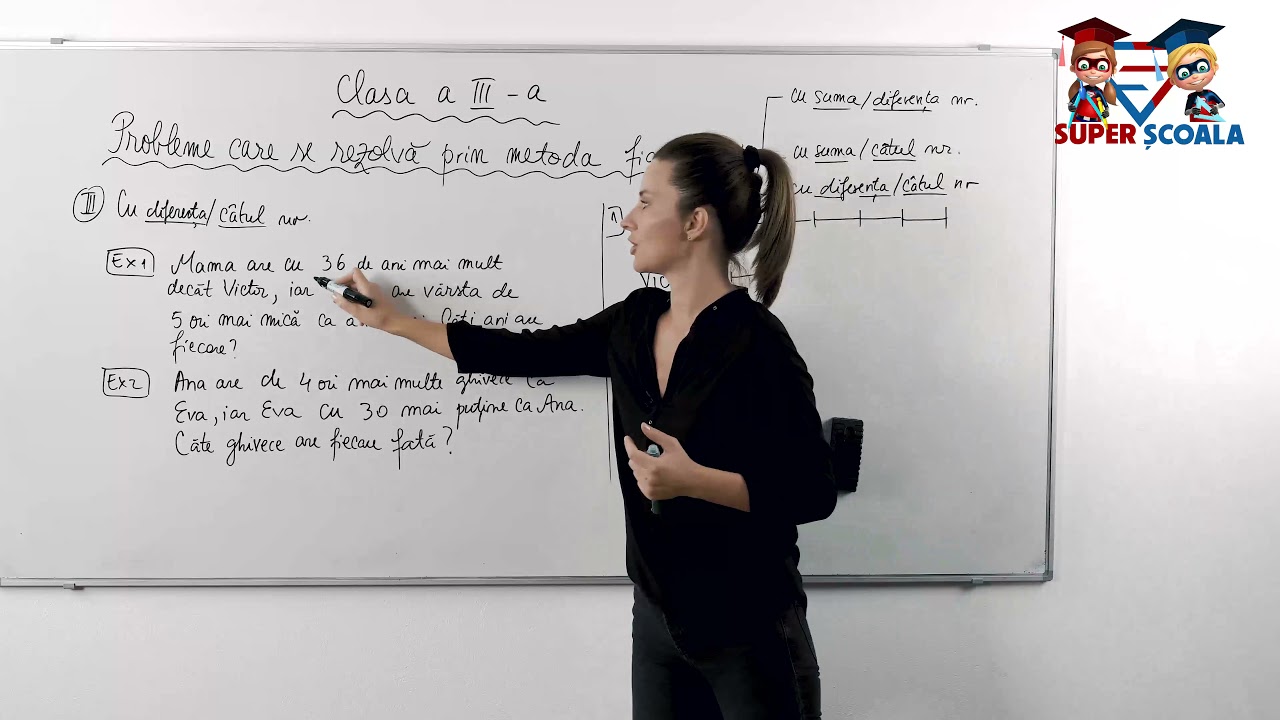 Clasa a III-a
Probleme care se rezolvă prin metoda
cu suma/diferența nr.
cu suma/câtul nr.
cu diferența/câtul nr
SUPER ȘCOALA
III Cu diferența/câtul nr.
1)
Ex1 Mama are cu 36 de ani mai mult
decât Victor, iar are vârsta de
5 ori mai mică ca Câți ani au
fiecare?
Ex2 Ana are de 4 ori mai multe ghivece ca
Eva, iar Eva cu 30 mai puține ca Ana.
Câte ghivece are fiecare fată?